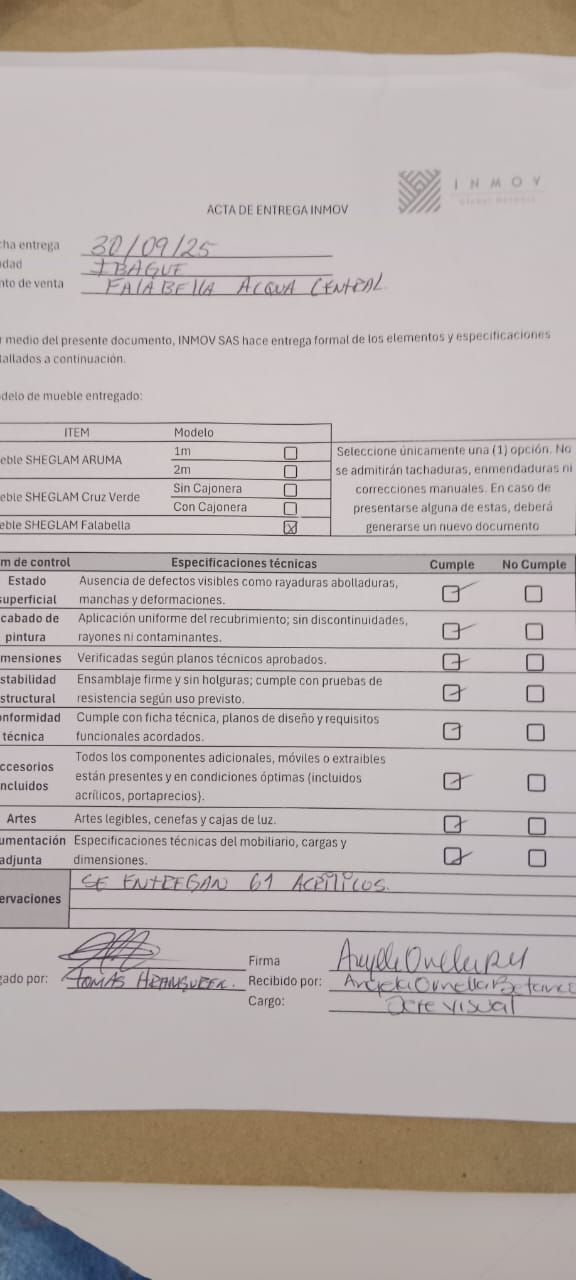 INMOV
ACTA DE ENTREGA INMOV
cha entrega 30/09/25
dad IBAGUE
nto de venta FALABELLA ACQUA CENTRAL
r medio del presente documento, INMOV SAS hace entrega formal de los elementos y especificaciones
tallados a continuación.
delo de mueble entregado:
ITEM Modelo
eble SHEGLAM ARUMA 1m
2m
eble SHEGLAM Cruz Verde Sin Cajonera
Con Cajonera
eble SHEGLAM Falabella
Seleccione únicamente una (1) opción. No
se admitirán tachaduras, enmendaduras ni
correcciones manuales. En caso de
presentarse alguna de estas, deberá
generarse un nuevo documento
m de control Especificaciones técnicas Cumple No Cumple
Estado Ausencia de defectos visibles como rayaduras abolladuras,
uperficial manchas y deformaciones.
cabado de Aplicación uniforme del recubrimiento; sin discontinuidades,
pintura rayones ni contaminantes.
mensiones Verificadas según planos técnicos aprobados.
stabilidad Ensamblaje firme y sin holguras; cumple con pruebas de
structural resistencia según uso previsto.
nformidad Cumple con ficha técnica, planos de diseño y requisitos
técnica funcionales acordados.
ccesorios Todos los componentes adicionales, móviles o extraibles
ncluidos están presentes y en condiciones óptimas (incluidos
acrílicos, portaprecios).
Artes Artes legibles, cenefas y cajas de luz.
umentación Especificaciones técnicas del mobiliario, cargas y
adjunta dimensiones.
ervaciones SE ENTREGAN 61 ACRILICOS.
Firma
gado por: TOMAS Recibido por: Angela Ornella
Cargo: visual